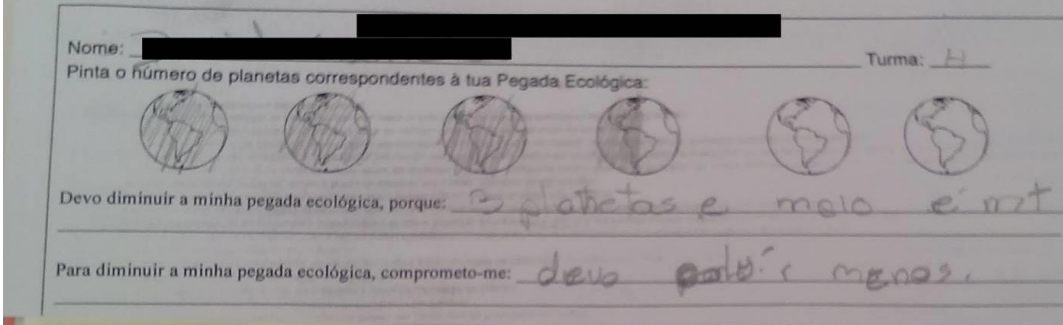 Nome:
Turma: H
Pinta o número de planetas correspondentes à tua Pegada Ecológica:
Devo diminuir a minha pegada ecológica, porque: 3 planetas e meio é mt
Para diminuir a minha pegada ecológica, comprometo-me: devo menos.